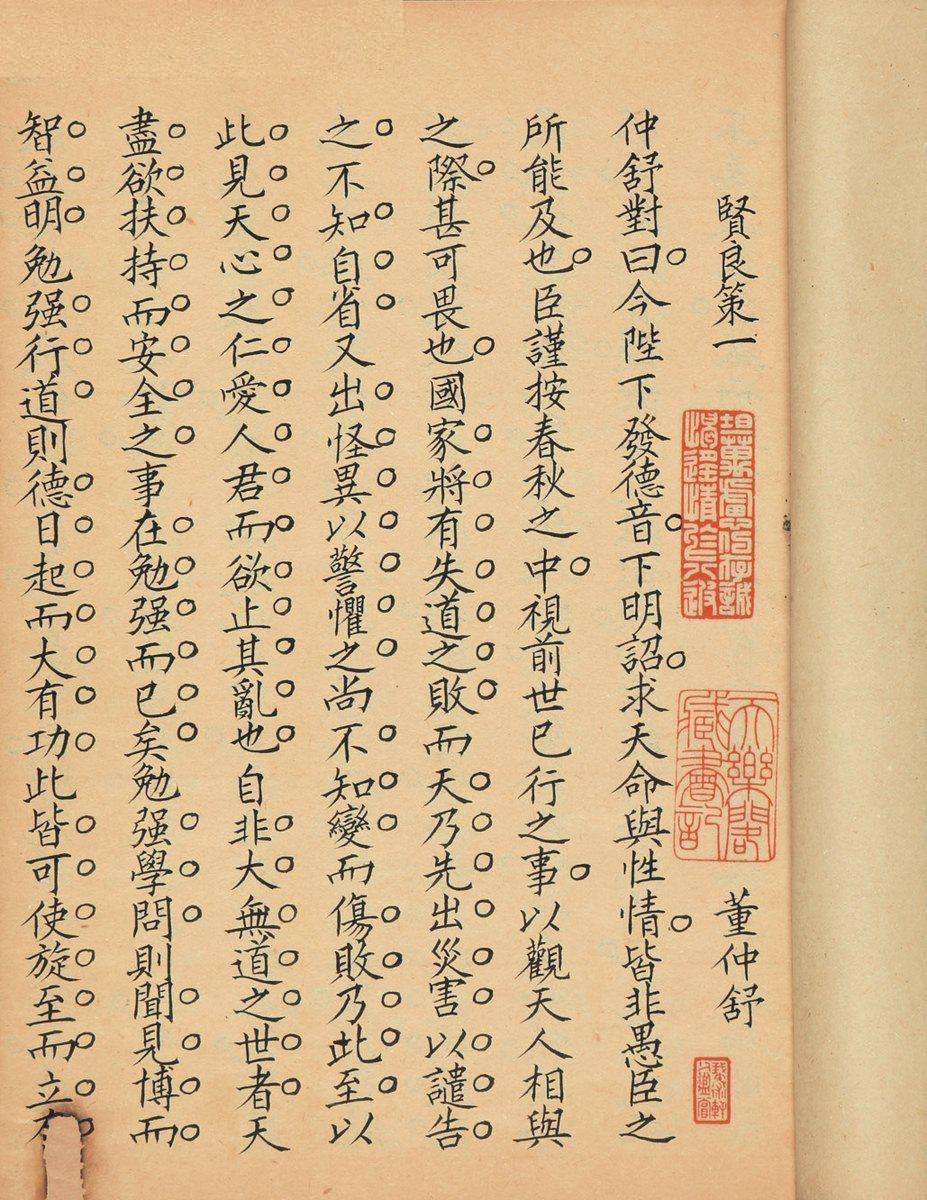 賢良策一 董仲舒
仲舒對曰今陛下發德音下明詔求天命與性情皆非愚臣之
所能及也臣謹按春秋之中視前世已行之事以觀天人相與
之際甚可畏也國家將有失道之敗而天乃先出災害以譴告
之不知自省又出怪異以警懼之尚不知變而傷敗乃此至以
此見天心之仁愛人君而欲止其亂也自非大無道之世者天
盡欲扶持而安全之事在勉强而已矣勉强學問則聞見博而
智益明勉强行道則德日起而大有功此皆可使旋至而立